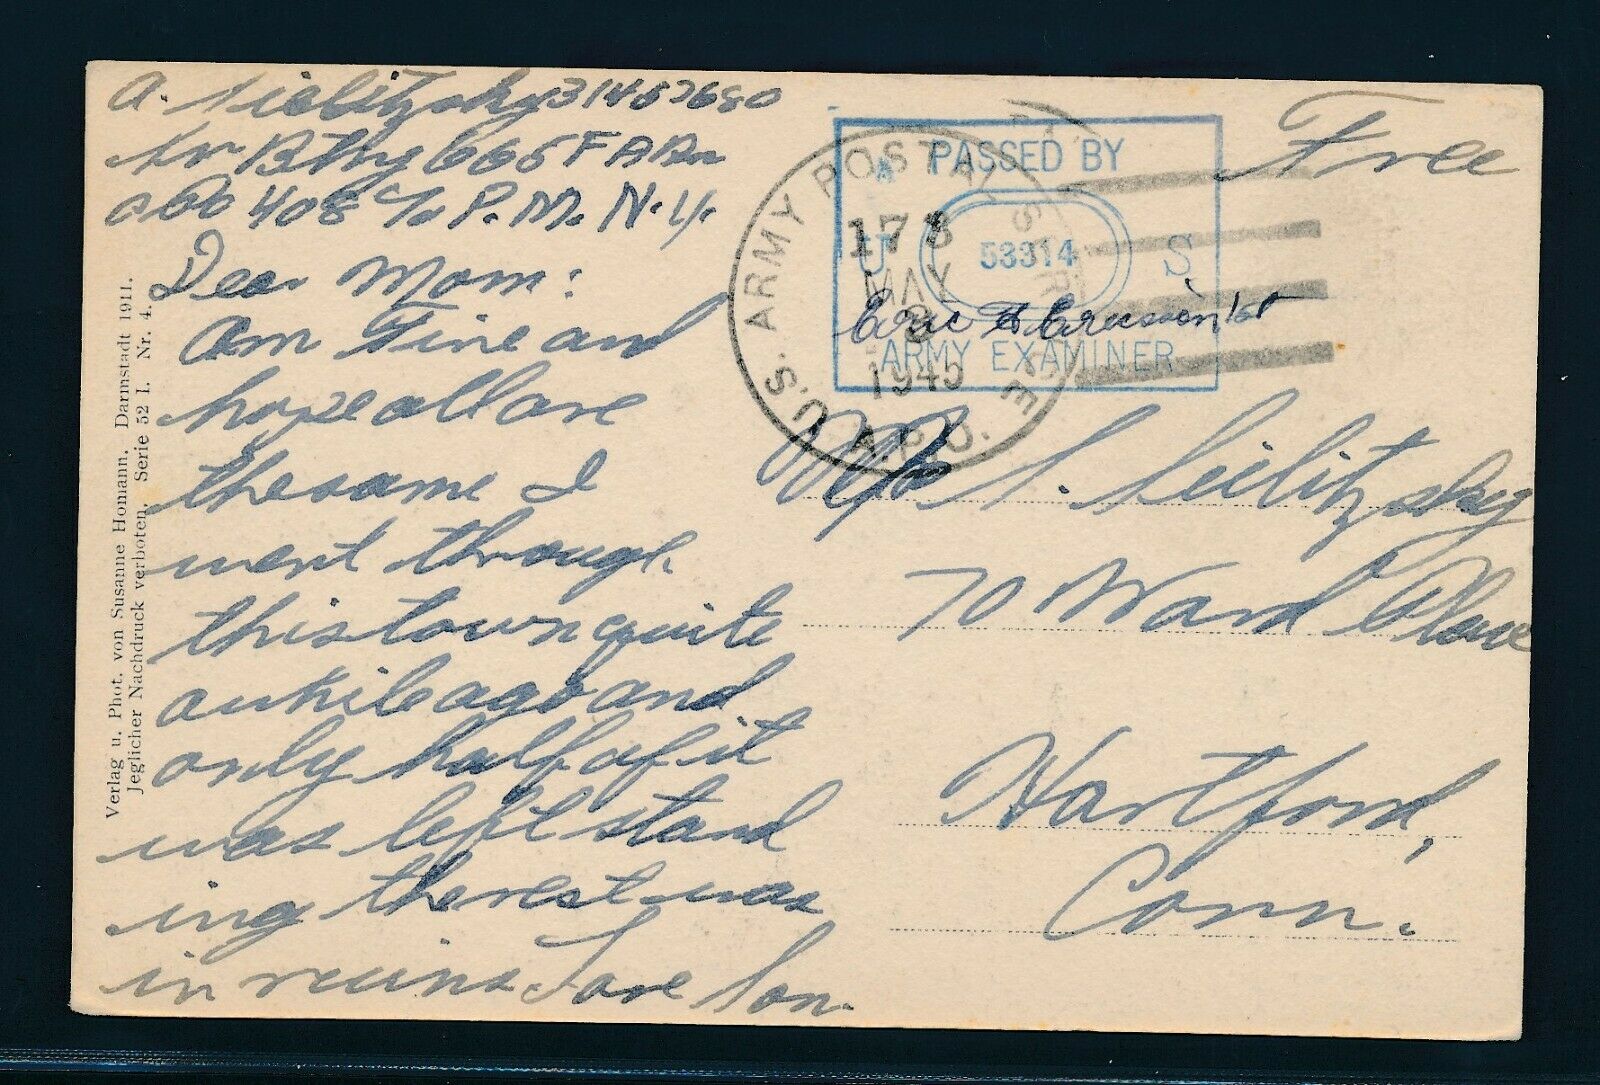 A. Sielitzsky 31457680
Hr Btry 665 F A Bn
APO 408 c/o P.M. N.Y.
Dear Mom:
Am Fine and
hope all are
the same I
went through
this town quite
awhile ago and
only half of it
was left stand
ing the rest was
in ruins Love Son.
Verlag u. Phot. von Susanne Homann, Darmstadt 1911.
Jeglicher Nachdruck verboten. Serie 52 I. Nr. 4.
Free
U.S. ARMY POSTAL SERVICE
A.P.O.
MAY
8
1945
PASSED BY
A
U S
53314
ARMY EXAMINER
S. Sielitzsky
70 Ward Place
Hartford,
Conn.